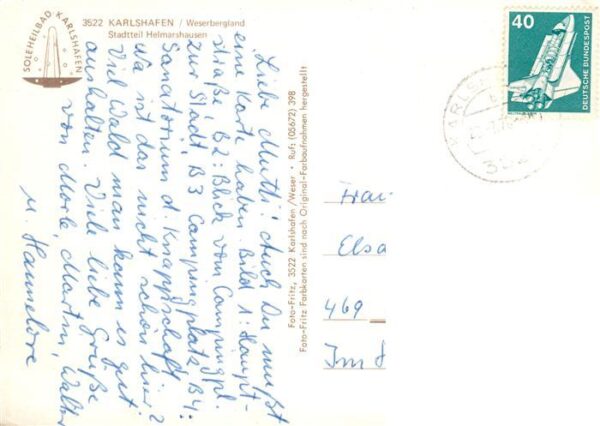 SOLEHEILBAD KARLSHAFEN
3522 KARLSHAFEN / Weserbergland
Stadtteil Helmarshausen
Liebe Mutti! Auch Du mußt
eine Karte haben. Bild 1: Haupt-
straße B2: Blick vom Campingpl.
zur Stadt B3 Campingplatz B4:
Sanatorium d. Knappschaft.
Na ist das nicht schön hier?
Viel Wald man kann es gut
aushalten. Viele liebe Grüße
von Merle, Martin, Walter
u Hannelore
Foto-Fritz, 3522 Karlshafen/Weser · Ruf: (05672) 398
Foto-Fritz Farbkarten sind nach Original-Farbaufnahmen hergestellt
40
DEUTSCHE BUNDESPOST
Frau
Elsa
469
Im